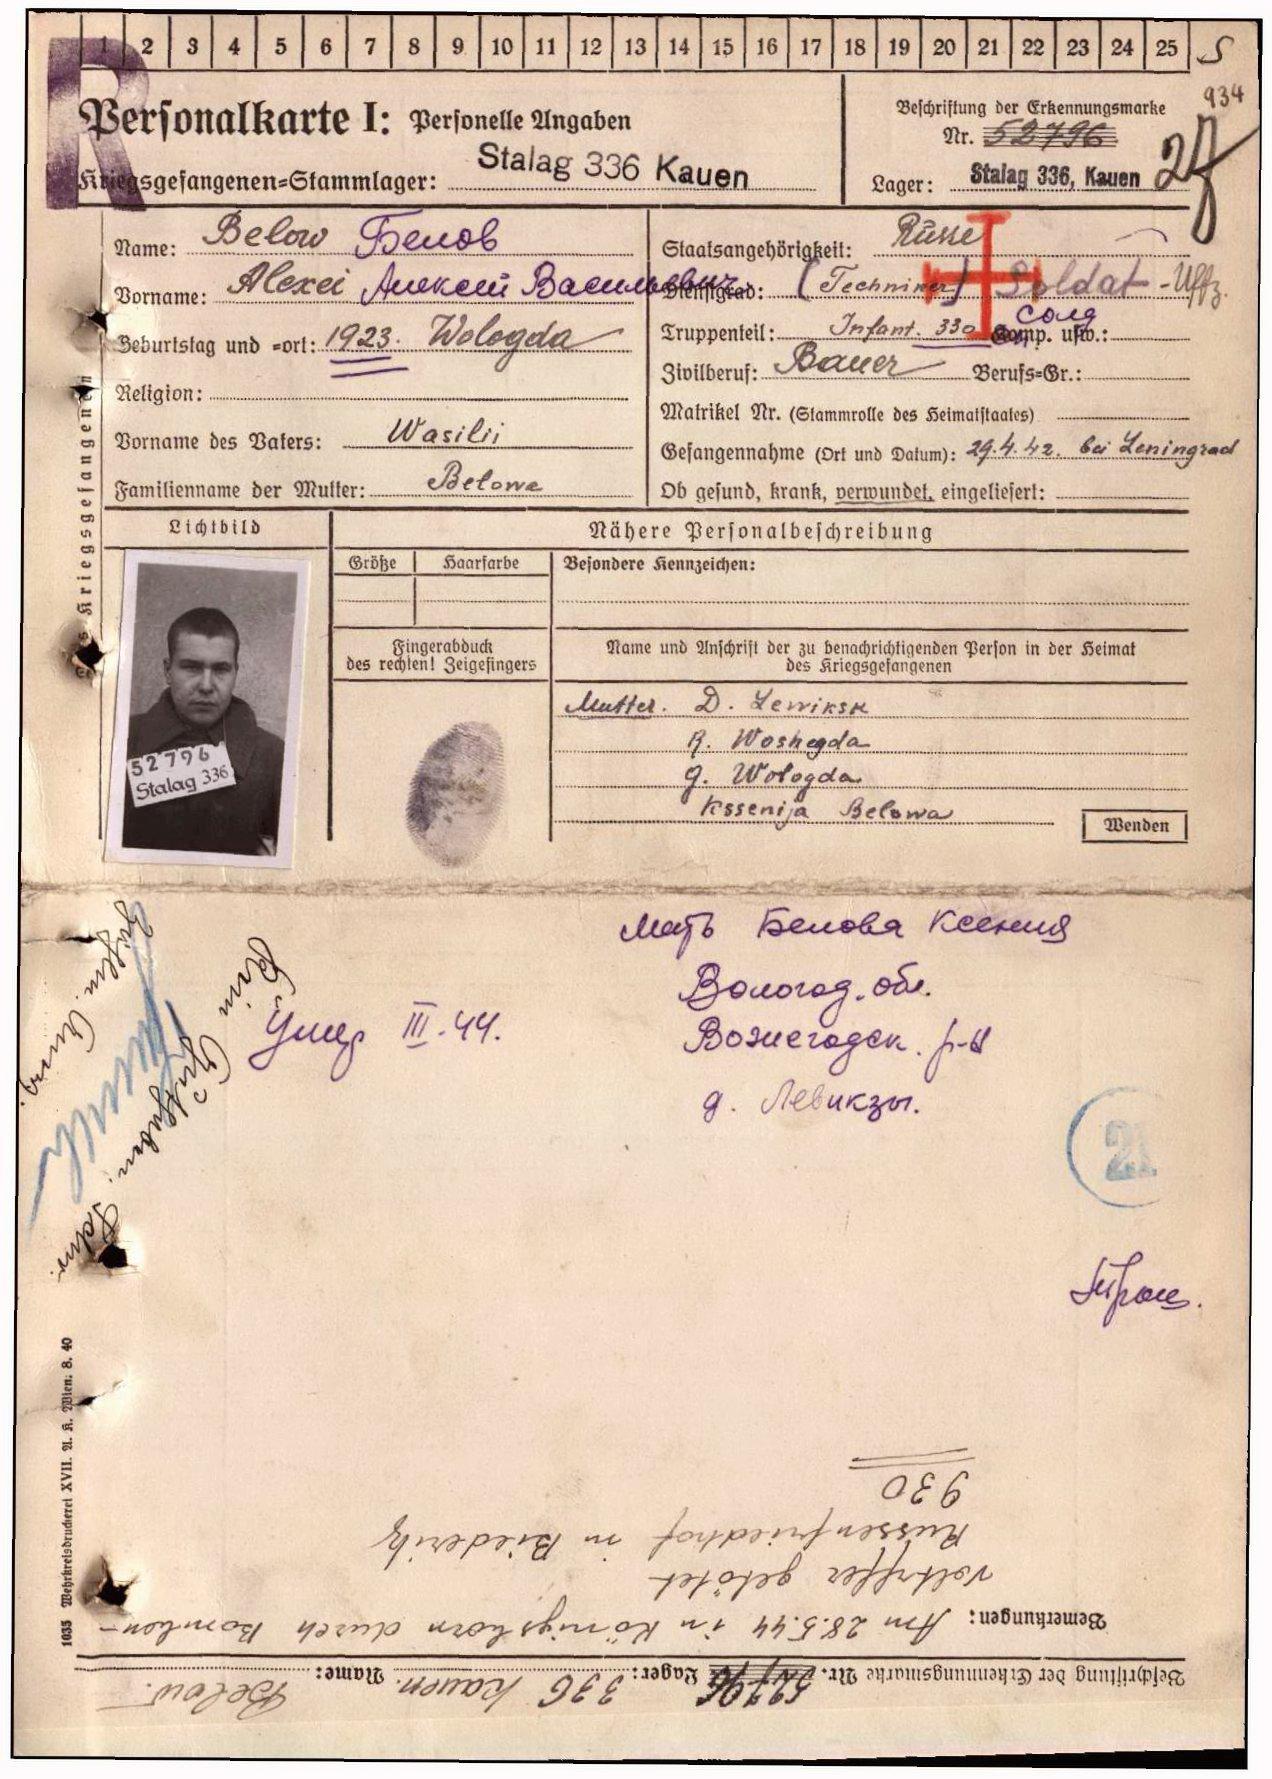 1 2 3 4 5 6 7 8 9 10 11 12 13 14 15 16 17 18 19 20 21 22 23 24 25 S
R
934
Personalkarte I: Personelle Angaben
Kriegsgefangenen=Stammlager: Stalag 336 Kauen
Beschriftung der Erkennungsmarke
Nr. 52796
Lager: Stalag 336, Kauen
Name: Below Белов
Vorname: Alexei Алексей Васильевич
Geburtstag und =ort: 1923. Wologda
Religion:
Vorname des Vaters: Wasilii
Familienname der Mutter: Belowa
Staatsangehörigkeit: Russe
Dienstgrad: (Techniker) Soldat - Uffz.
солд
Truppenteil: Infant. 330 Komp. usw.:
Zivilberuf: Bauer Berufs=Gr.:
Matrikel Nr. (Stammrolle des Heimatstaates)
Gefangennahme (Ort und Datum): 29.4.42. bei Leningrad
Ob gesund, krank, verwundet, eingeliefert:
des Kriegsgefangenen
Lichtbild
Nähere Personalbeschreibung
Größe Haarfarbe Besondere Kennzeichen:
52796
Stalag 336
Fingerabduck
des rechten! Zeigefingers
Name und Anschrift der zu benachrichtigenden Person in der Heimat
des Kriegsgefangenen
Mutter. D. Lewiksk
R. Woshegda
G. Wologda
Kssenija Belowa
Wenden
Мать Белова Ксения
Вологод. обл.
Вожегодск. р-н
д. Левикзы.
Умер III.44.
Kein
21
1035 Wehrkreisdruckerei XVII. A. K. Wien. 8. 40
Beschriftung der Erkennungsmarke Nr. 52796 Lager: 336 Kauen. Name: Below.
Bemerkungen: Am 28.5.44 in Königsborn durch Bomben-
volltreffer getötet
Russenfriedhof in Biederitz
930